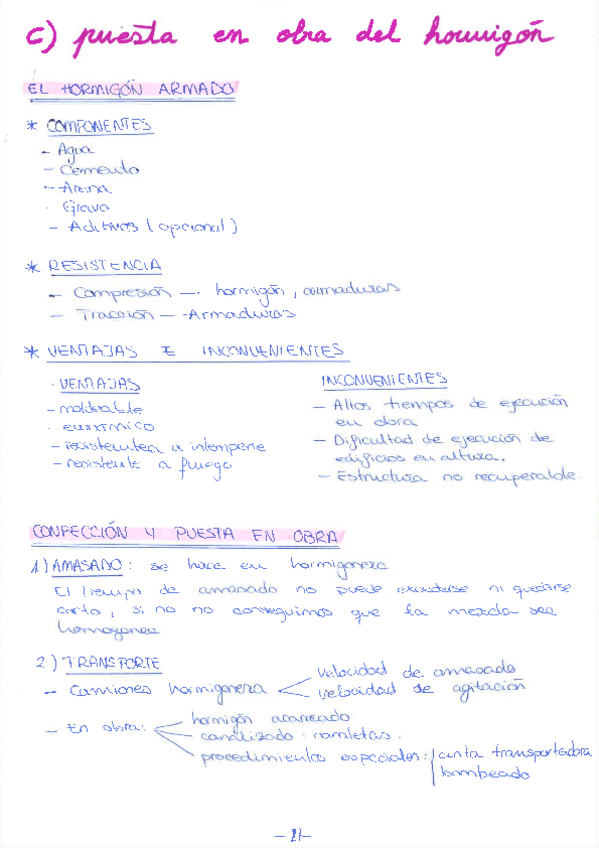 c) puesta en obra del hormigón
EL HORMIGÓN ARMADO
* COMPONENTES
- Agua
- Cemento
- Arena
- Grava
- Aditivos (opcional)
* RESISTENCIA
- Compresión - hormigón, armaduras
- Tracción - Armaduras
* VENTAJAS E INCONVENIENTES
· VENTAJAS
- moldeable
- económico
- resistente a a intemperie
- resistente a fuego
INCONVENIENTES
- Altos tiempos de ejecución
en obra
- Dificultad de ejecución de
edificios en altura.
- Estructura no recuperable.
CONFECCIÓN Y PUESTA EN OBRA
1) AMASADO: se hace en hormigonera
El tiempo de amasado no puede excederse ni quedarse
corto, si no no conseguimos que la mezcla sea
homogonea
2) TRANSPORTE
- Camiones hormigonera < velocidad de amasado
velocidad de agitación
- En obra: hormigón acarreado
canalizado: canaletas.
procedimientos especiales: cinta transportadora
bombeado